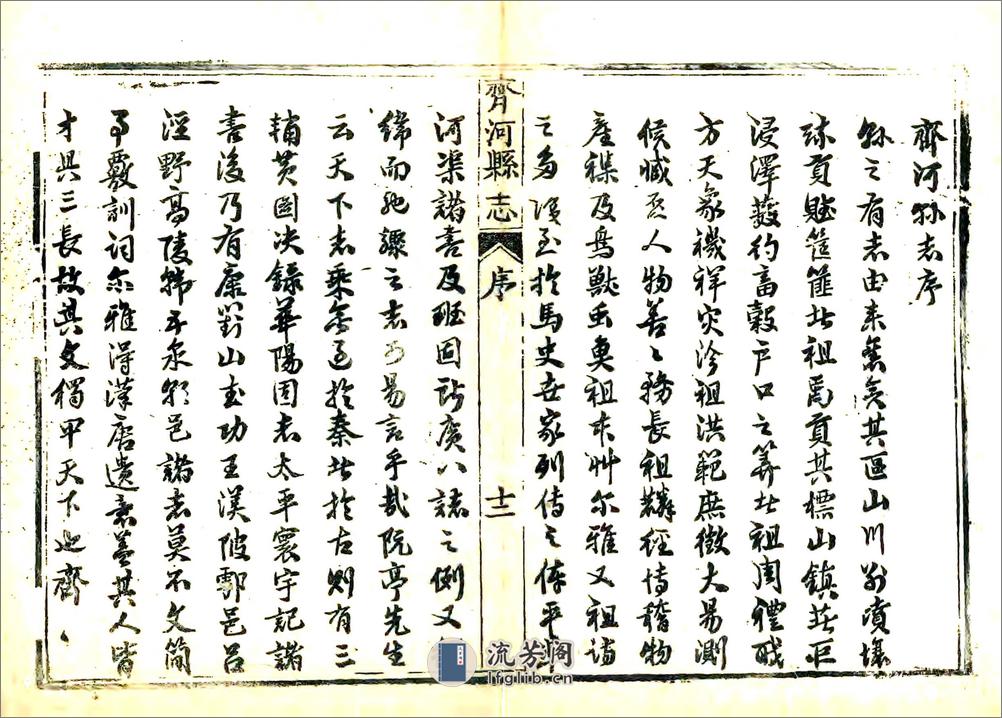 齊河縣志序
縣之有志由來舊矣其區山川別墳壤
疏貢賦筐篚者祖禹貢其標山鎮莊巨
浸澤藪約畜穀戶口之筭者祖周禮職
方天象禨祥災沴祖洪範庶徵大易測
候臧否人物善善務長祖麟經博稽物
產襍及鳥獸虫魚祖本艸尔雅又祖詩
之多識至於馬史世家列傳之体平準
河渠諸書及班固所廣八誌之例又
締而馳驟之志可易言乎哉阮亭先生
云天下志乘無過於秦者於古則有三
輔黃圖决錄華陽國志太平寰宇記諸
書後乃有康對山武功王渼陂鄠邑呂
涇野高陵韓五泉朝邑諸志莫不文簡
事覈訓詞尔雅得漢唐遺意蓋其人皆
才具三長故其文獨甲天下也齊
齊河縣志
序
十二
流芳阁
lfglib.cn